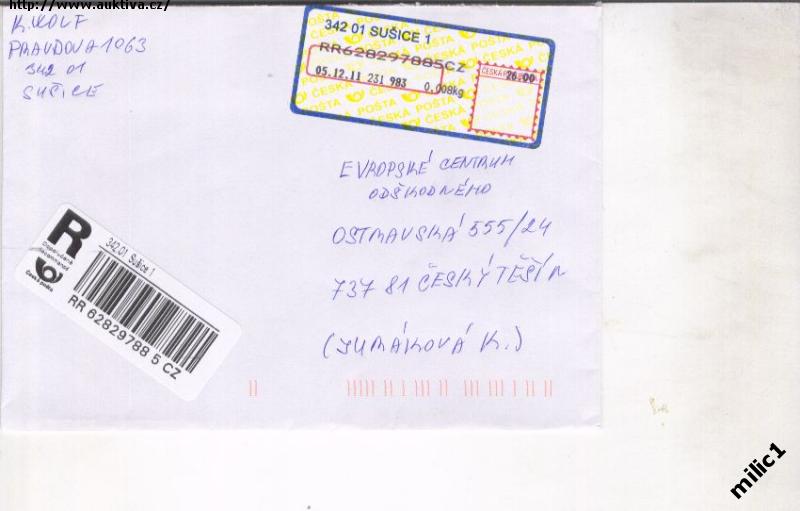 http://www.auktiva.cz/
K. KOLF
PRAVDOVA 1063
342 01
SUŠICE
342 01 SUŠICE 1
RR628297885CZ
05.12.11 231 983 0,008kg
ČESKÁ POŠTA 26.00
EVROPSKÉ CENTRUM
ODŠKODNÉHO
OSTRAVSKÁ 555/24
737 81 ČESKÝ TĚŠÍN
(JUMÁKOVÁ K.)
R
Doporučeně
Recommandé
Česká pošta
342 01 Sušice 1
RR 62829788 5 CZ
milic1